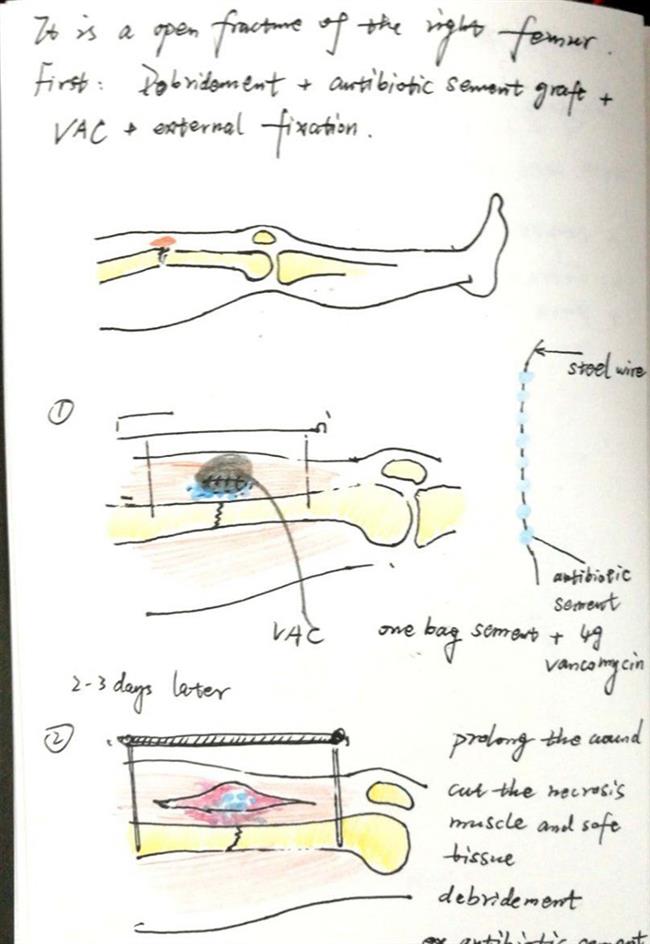 It is a open fracture of the right femur.
First: Debridement + antibiotic sement graft +
VAC + external fixation.
steel wire
①
antibiotic
sement
VAC
one bag sement + 4g
vancomycin
2-3 days later
②
prolong the wound
cut the necrosis
muscle and sofe
tissue
debridement
antibiotic sement